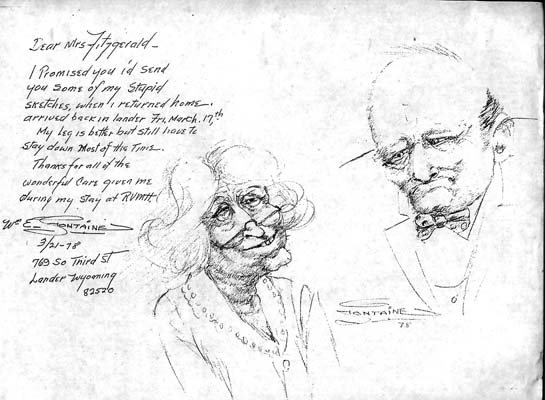 Dear Mrs Fitzgerald -
I Promised you i'd Send
you Some of my Stupid
sketches, when I returned home.
arrived back in lander Fri, March. 17,th
My Leg is better but still have to
stay down Most of the Time.
Thanks for all of the
wonderful Care given me
during my stay at RVMH
Wm E. Fontaine
3/21-78
769 So Third St
Lander Wyoming
82520
Fontaine
78